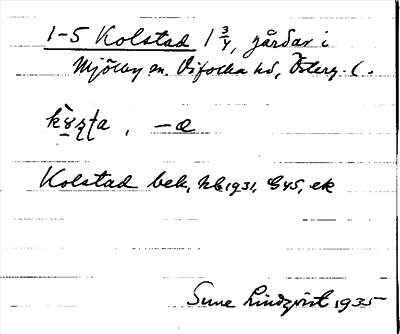 1-5 Kolstad 1 3/4, gårdar i
Mjölby sn. Vifolka hd, Österg. l.
, -a
Kolstad bek, hb 1931, G45, ek
Sune Lindqvist 1935